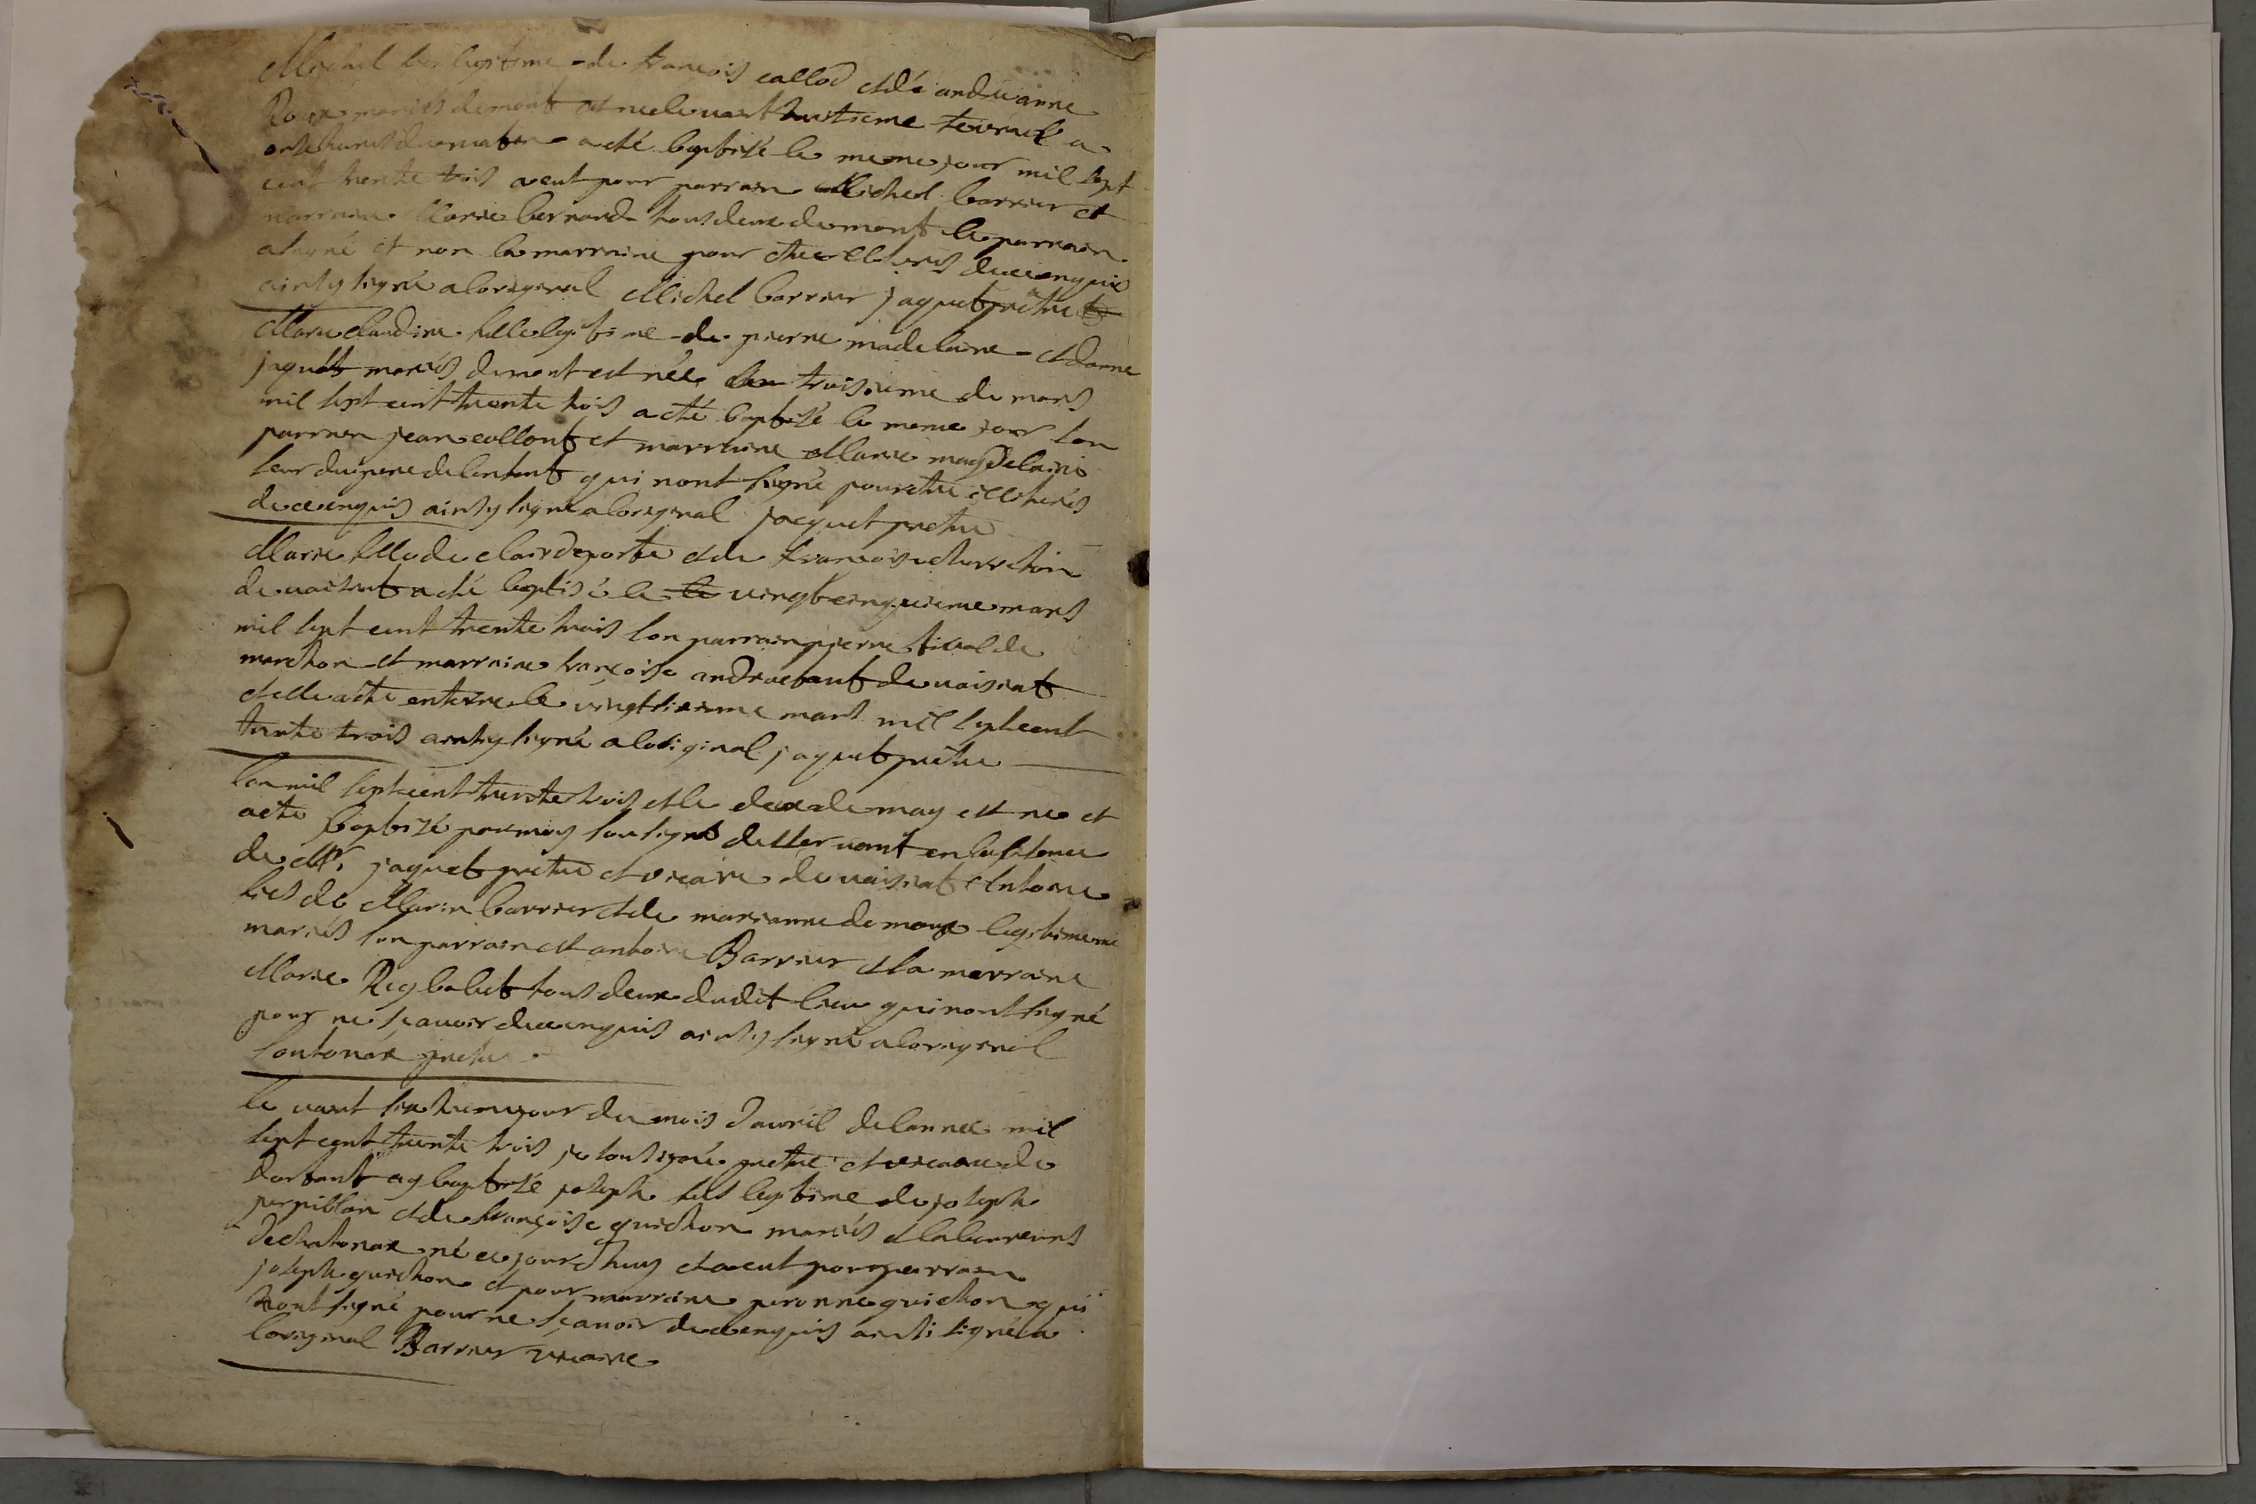 Michel fis legitime de francois callod et de andreanne
Roux mariés du mont est ne le vant huitieme fevrier a
onse heures du matin a eté baptisé le meme jour mil sept
cent trente trois a eut pour parrain Michel barrier et
marraine Marie bernard tous deux du mont le parrain
a signé et non la marraine pour etre illeteres de ce enquis
ainsy signé a loriginal Michel barrier jaquet prêtre
Marie claudine fille legitime de pierre madelaine et danne
jaquet mariés du mont est née le troisieme de mars
mil sept cent trente trois a eté baptisé le meme jour son
parrien jean collont et marraine Marie magdelaine
seur du pere de lenfant qui nont signé pour etre illeterés
de ce enquis ainsy signé a loriginal jacquet pretre
Marie fille de clair deporte et de francoise
de vaisnat a eté baptisé le le vingt cinquieme mars
mil sept cent trente trois son parrain pierre de
marchon et marraine francoise de vaisnat
et elle a eté enterre le vingt sixieme mars mil sept cent
trente trois ainsy signé a loriginal jaquet pretre
lan mil sept cent trente trois et le deux de may est ne et
a eté baptizé par moy sousigné desservant en labsence
de Mr jaquet prêtre et vicaire de vaisnat Antoine
fies de Marin barrier et de marianne demoux legitimeme
mariés son parrain est antoine Barrier et la marraine
Marie Rey babet tous deux dudit lieu qui nont signé
pour ne scavoir de ce enquis ainsy signé a loriginal
pretre
le vant sixieme jour du mois davril de lannee mil
sept cent trente trois je soussigné pretre et vicaire de
dortant ay baptisé joseph fils legitime de joseph
perpillon et de francoise guichon mariés et laboureurs
de chatonax né ce jourdhuy et a eut pour parrain
joseph guichon et pour marraine peronne guichon qui
nont signé pour ne scavoir de ce enquis ainsi signé a
loriginal Barrier vicaire